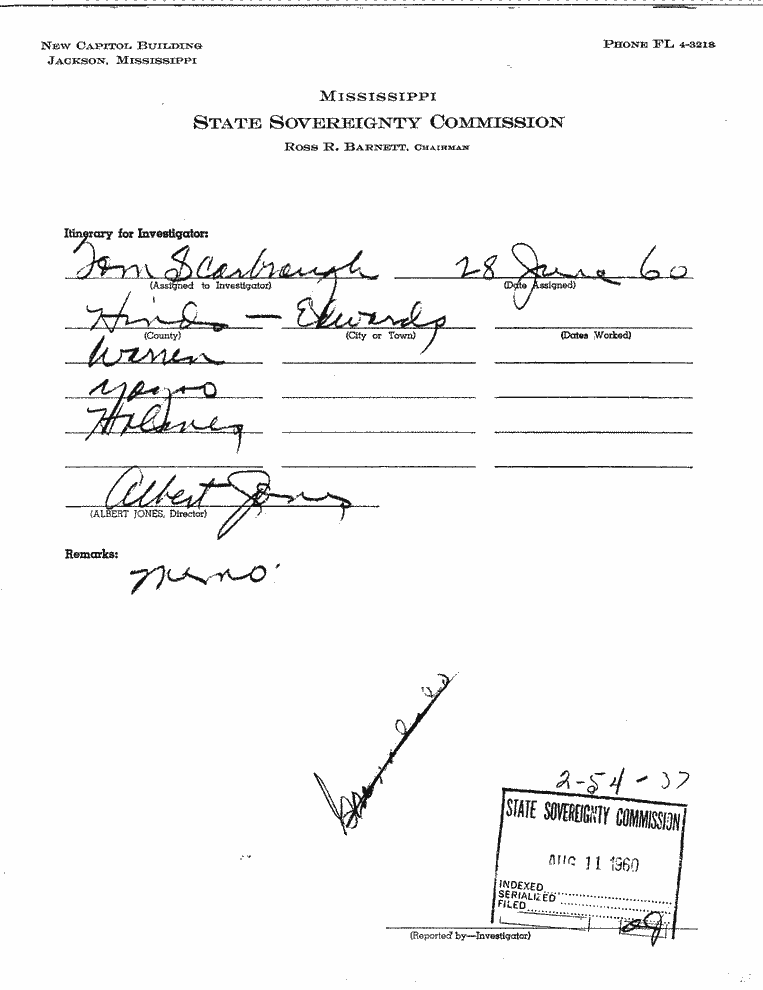 NEW CAPITOL BUILDING
JACKSON, MISSISSIPPI
PHONE FL 4-3218
MISSISSIPPI
STATE SOVEREIGNTY COMMISSION
ROSS R. BARNETT, CHAIRMAN
Itinerary for Investigator:
Tom Scarbrough 28 June 60
(Assigned to Investigator) (Date Assigned)
Hinds — Edwards
(County) (City or Town) (Dates Worked)
Warren
Yazoo
Holmes
Albert Jones
(ALBERT JONES, Director)
Remarks:
Memo
2-54-37
STATE SOVEREIGNTY COMMISSION
AUG 11 1960
INDEXED
SERIALIZED
FILED
(Reported by—Investigator)